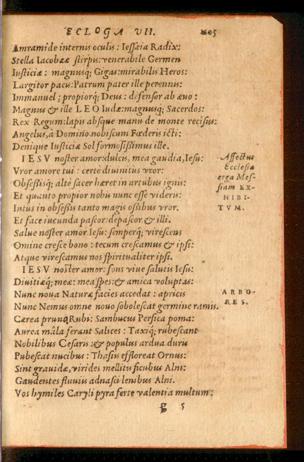 ECLOGA VII. 105
Amramidæ internis oculus: Iessæia Radix:
Stella Iacobææ stirpis: venerabile Germen
Iusticiæ: magnusq; Gigas: mirabilis Heros:
Largitor pacis: Patrum pater ille perennis:
Immanuel; propiorq; Deus: defensor ab æuo:
Magnus & ille LEO Iudæ: magnusq; Sacerdos:
Rex Regum: lapis absque manu de monte recisus:
Angelus, à Domino nobiscum Fœderis icti:
Denique Iusticiæ Sol formosissimus ille.
IESV noster amor: dulcis, mea gaudia, Iesu:
Vror amore tui: certè diuinitus vror:
Obsessisq; altè sacer hæret in artubus ignis:
Et quantò propior nobis nunc esse videris:
Intus in obsessis tanto magis ossibus vror.
Et face iucunda pascor: depascor & illi.
Salue noster amor Iesu: semperq; virescens
Omine cresce bono: tecum crescamus & ipsi:
Atque virescamus nos spiritualiter ipsi.
IESV noster amor: fons viuæ salutis Iesu:
Diuitiæq; meæ: mea spes: & amica voluptas:
Nunc noua Naturæ facies accedat: apricis
Nunc Nemus omne nouo sobolescat germine ramis.
Cærea pruna Rubi: Sambucus Persica poma:
Aurea mala ferant Salices: Taxiq; rubescant
Nobilibus Cerasis: & populus ardua duris
Pubescat nucibus: Thasiis effloreat Ornus:
Sint grauidæ, virides mellitis ficubus Alni:
Gaudentes fluuiis adnasci lenibus Alni.
Vos humiles Coryli pyra ferte valentia multum;
g 5
Affectus
Ecclesiæ
erga Mes-
siam EX-
HIBI-
TVM.
ARBO-
RES.